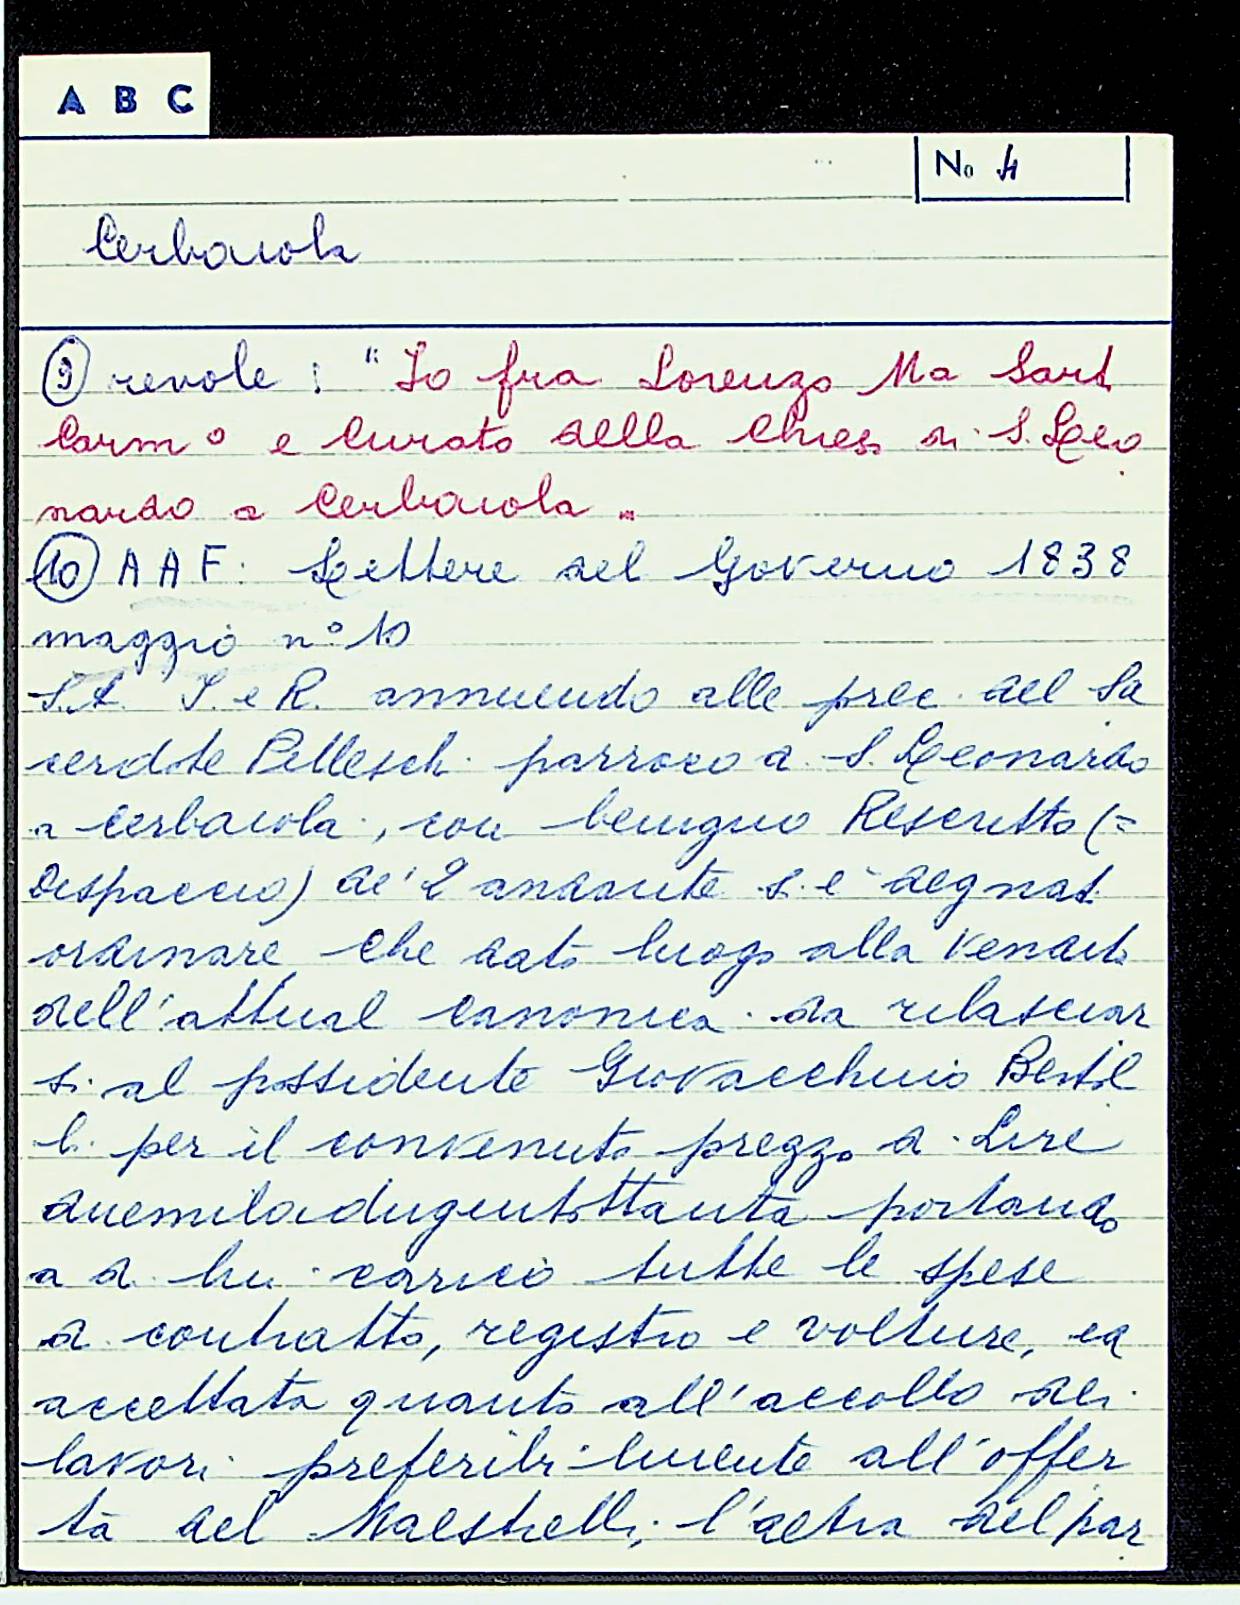 A B C
No 4
Cerbaiola
(9) revole : "Io fra Lorenzo Ma Sart
Carm o e Curato della Chiesa di S. Leo
nardo a Cerbaiola "
(10) A A F: Lettere del Governo 1838
maggio n° 10
S.A. I. e R. annuendo alle prec. del Sa
cerdote Pelleschi parroco di S. Leonardo
a Cerbaiola, con benigno Rescritto (=
Dispaccio) de' 2 andante si è degnat.
ordinare, che dato luogo alla vendita
dell'attual canonica da rilasciar
si al possidente Giovacchino Bertol
li per il convenuto prezzo di Lire
duemiladugentottanta portando
a di lui carico tutte le spese
di contratto, registro e volture, ed
accettata quanto all'accollo dei
lavori preferibilmente all'offer
ta del Maestrelli, l'altra del par